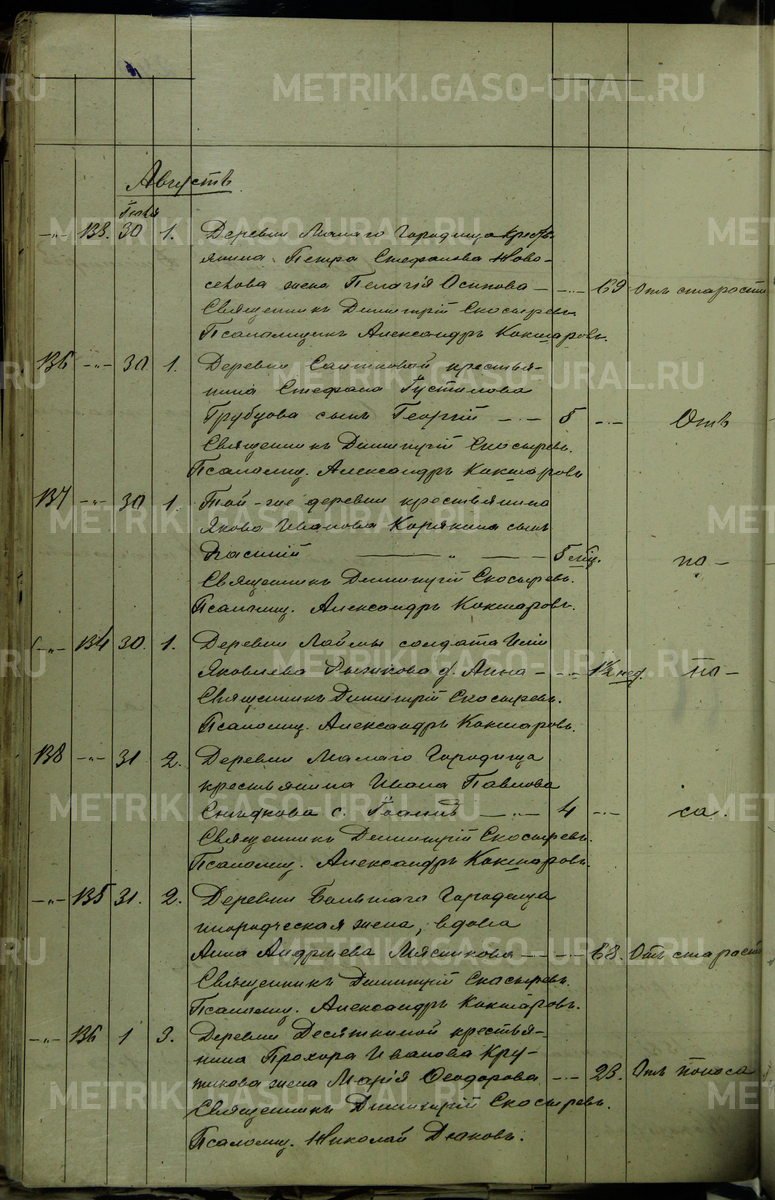 METRIKI.GASO-URAL.RU
Августъ.
Іюля
-„- 133. 30 1. Деревни Малаго Городища кресть-
янина Петра Стефанова Ново-
селова жена Пелагія Осипова - -„- 69 Отъ старости
Священникъ Димитрій Скосыревъ.
Псаломщикъ Александръ Кокшаровъ.
136 -„- 30 1. Деревни крестья-
нина Стефана
сынъ Георгій -„- 5 -„- Отъ
Священникъ Димитрій Скосыревъ.
Псаломщ. Александръ Кокшаровъ
137 -„- 30 1. Той-же деревни крестьянина
Якова Иванова Корякина сынъ
„ 5 мѣс. по-
Священникъ Димитрій Скосыревъ.
Псаломщ. Александръ Кокшаровъ.
-„- 134 30. 1. Деревни Лаймы солдата
Яковлева Рычкова д. Анна - -„- 1½ нед. но-
Священникъ Димитрій Скосыревъ.
Псаломщ. Александръ Кокшаровъ.
138 -„- 31 2. Деревни Малаго Городища
крестьянина Ивана Павлова
с. Іоаннъ -„- 4 -„- са.
Священникъ Димитрій Скосыревъ.
Псаломщ. Александръ Кокшаровъ.
-„- 135 31. 2. Деревни Большаго Городища
инородческая жена, вдова
Анна Андреева Мясникова - - 68. Отъ старости
Священникъ Димитрій Скосыревъ.
Псаломщ. Александръ Кокшаровъ.
-„- 136 1 3. Деревни Десяткиной крестья-
нина Прохора Иванова Кру-
тикова жена Марія Ѳеодорова -„- 23. Отъ поноса
Священникъ Димитрій Скосыревъ.
Псаломщ. Николай Дюковъ.